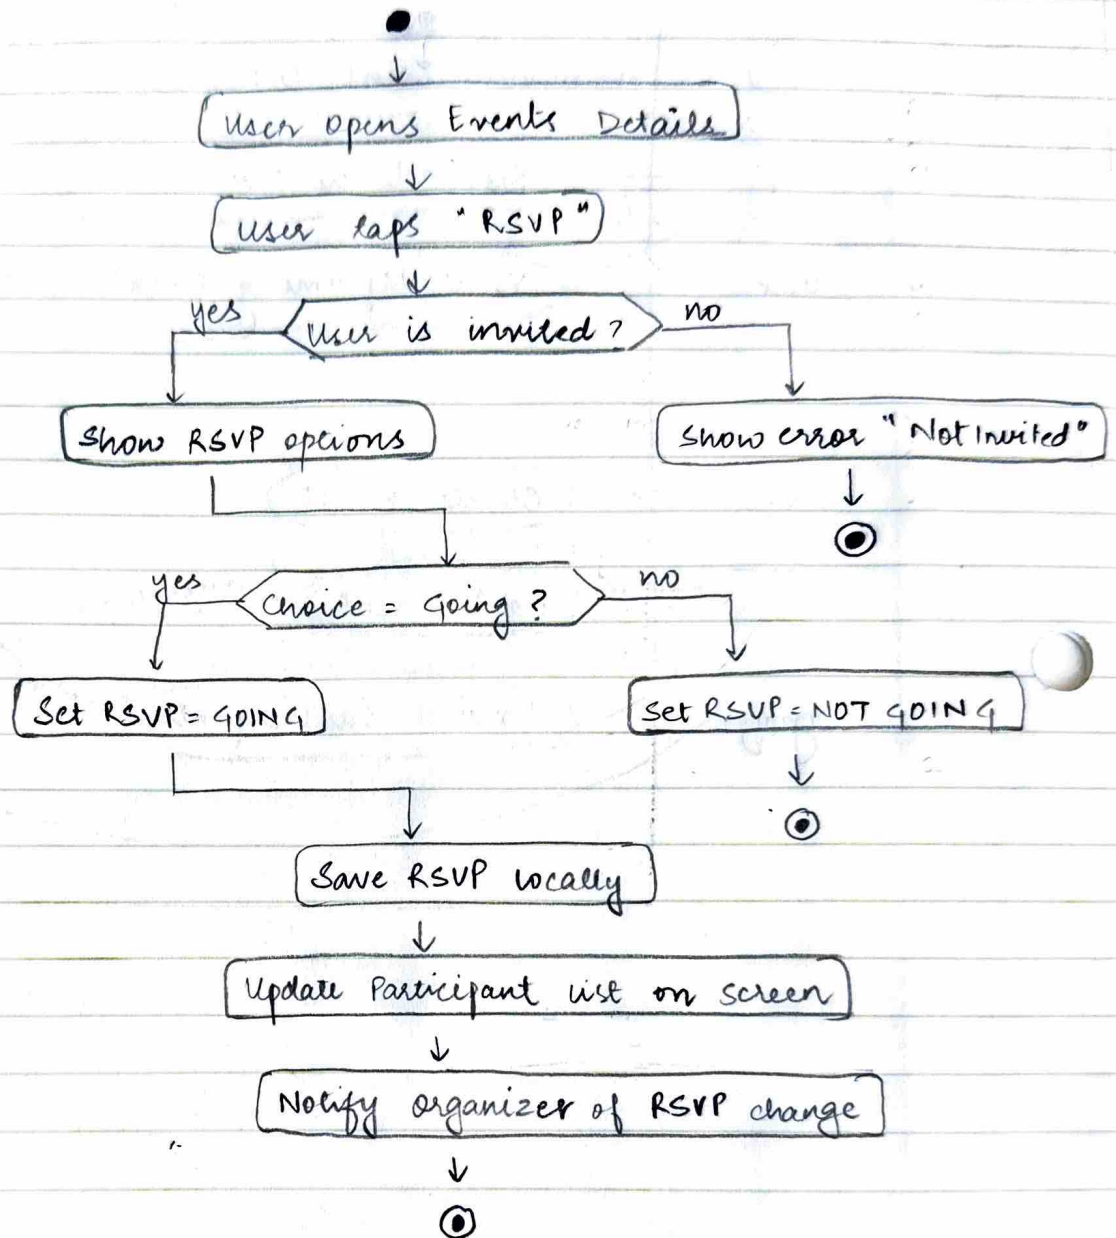 User opens Events Details
User taps "RSVP"
yes
User is invited?
no
Show RSVP options
Show error "Not Invited"
yes
Choice = Going?
no
Set RSVP = GOING
Set RSVP = NOT GOING
Save RSVP locally
Update Participant list on screen
Notify organizer of RSVP change